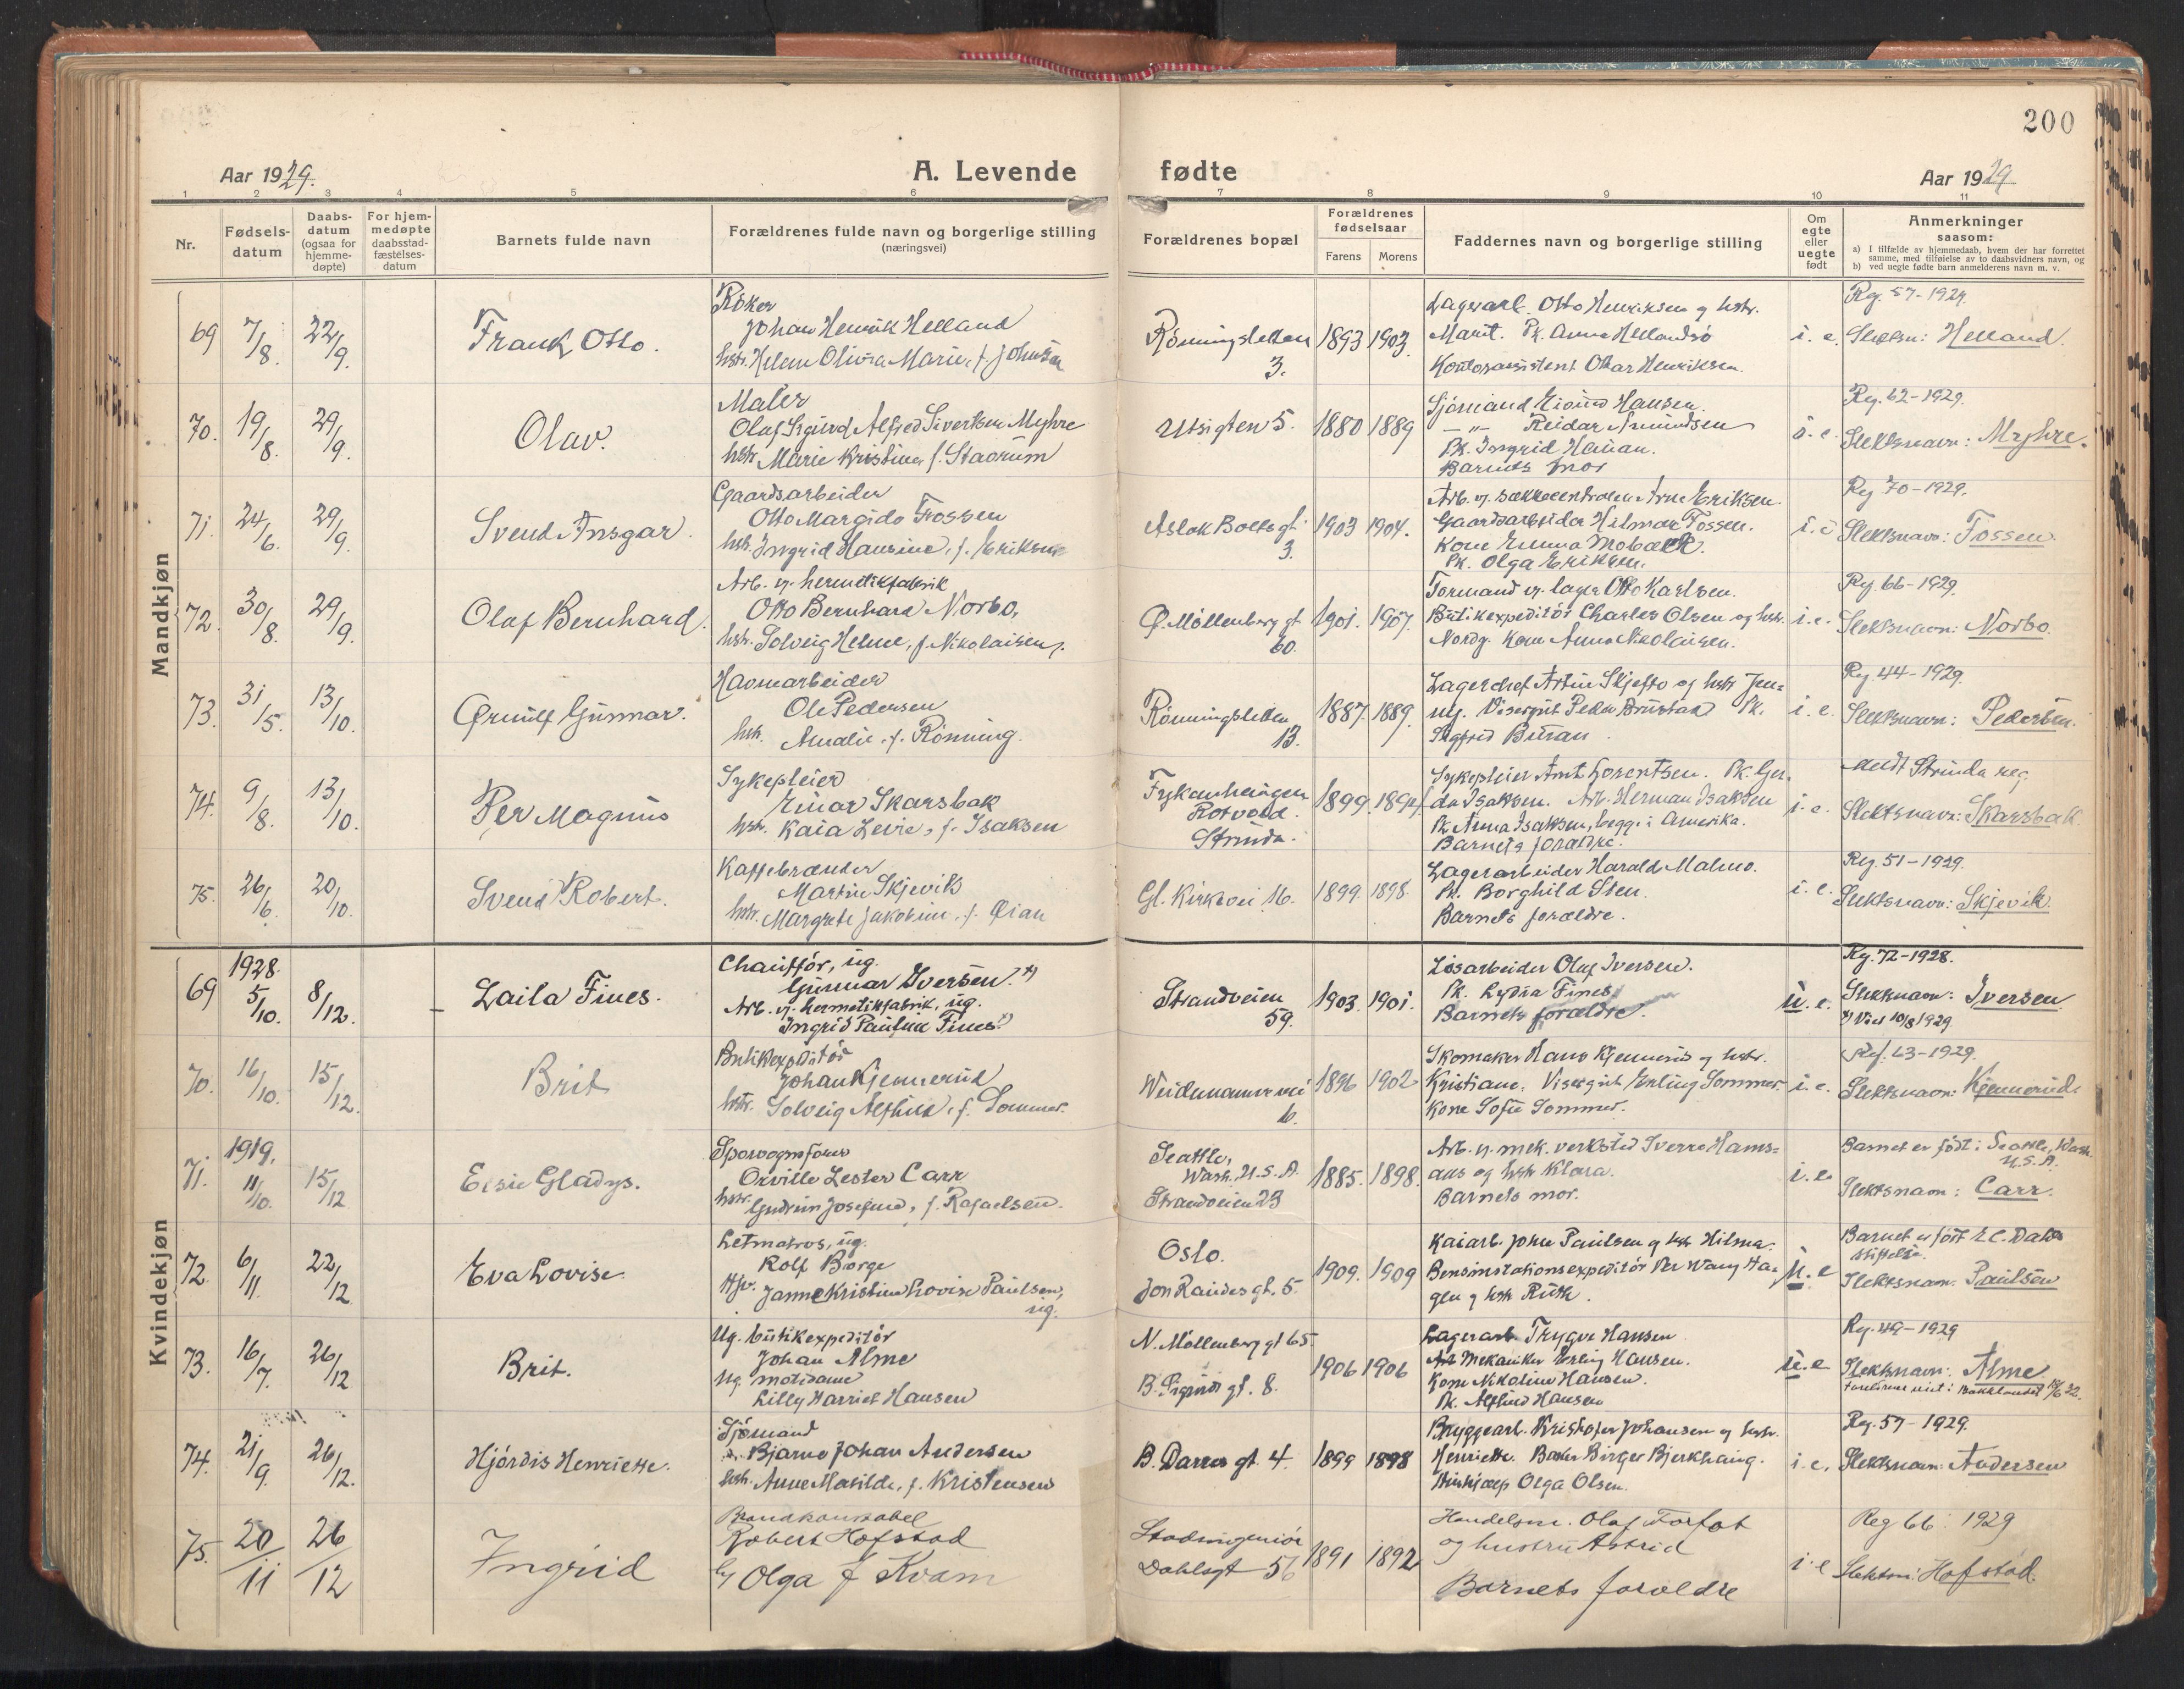 200
Aar 1929.
A. Levende fødte
Aar 1929
1 2 3 4 5 6 7 8 9 10 11
Nr.
Fødsels-
datum
Daabs-
datum
(ogsaa for
hjemme-
døpte)
For hjem-
medøpte
daabsstad-
fæstelses-
datum
Barnets fulde navn
Forældrenes fulde navn og borgerlige stilling
(næringsvei)
Forældrenes bopæl
Forældrenes
fødselsaar
Farens Morens
Faddernes navn og borgerlige stilling
Om
egte
eller
uegte
født
Anmerkninger
saasom:
a) I tilfælde av hjemmedaab, hvem der har forrettet
samme, med tilføielse av to daabsvidners navn, og
b) ved uegte fødte barn anmelderens navn m. v.
Mandkjøn
69 7/8. 22/9. Frank Otto.
Røker
Johan Henrik Helland
hstr. Helene Olivia Marie, f. Johnsen
Rönningsletten
3.
1893 1903.
Lagerarb. Otto Henriksen og hstr.
Marit. Pk. Anna Hellandsö
Kontorassistent Ottar Henriksen.
i. e.
Reg. 57-1929.
Slektsn: Helland.
70. 19/8. 29/9. Olav.
Maler
Olaf Sigurd Alfred Sivertsen Myhre
hstr. Marie Kristine, f. Staorum
Utsigten 5. 1880 1889
Sjömand Eivind Hansen.
- " - Reidar Amundsen
Pk. Ingrid Hauan.
Barnets mor
i. e.
Reg. 62-1929.
Slektsnavn: Myhre.
71. 24/6. 29/9. Svend Ansgar.
Gaardsarbeider
Otto Margido Fossen
hstr. Ingrid Hansine, f. Eriksen
Aslak Bolts gt.
3.
1903 1904.
Arb. v. sækkecentralen Arne Eriksen.
Gaardsarbeider Hilmar Fossen.
Kone Emma Mobæck.
Pk. Olga Eriksen.
i. e
Reg 70-1929.
Slektsnavn: Fossen.
72. 30/8. 29/9. Olaf Bernhard.
Arb. v. hermetikfabrik
Otto Bernhard Norbo,
hstr. Solveig Helene, f. Nikolaisen.
Ø. Möllenberg gt
60.
1901. 1907.
Formand v. lager Otto Karlsen.
Butikexpeditör Charles Olsen og hstr.
Nordg. Kone Anna Nikolaisen.
i. e.
Reg. 66-1929.
Slektsnavn: Norbo.
73. 31/5. 13/10. Ørnulf Gunnar.
Havnearbeider
Ole Pedersen
hstr. Amalie, f. Rönning.
Rönningsletten
13.
1887. 1889.
Lagerchef Artur Skjefto og hstr Jen=
ny. Visergut Peder Brustad Pk.
Sigfrid Buran.
i. e.
Reg 44-1929.
Slektsnavn: Pedersen.
74. 9/8. 13/10. Per Magnus
Sykepleier
Einar Skarsbak
hstr. Kaia Levie, f. Isaksen
Rotvold.
Strinda.
1899.
Sykepleier Arnt Lorentsen. Pk. Ger-
da Isaksen. Arb. Herman Isaksen
Pk. Anna Isaksen, begge i Amerika.
Barnets forældre.
i. e.
meldt Strinda reg
Slektsnavn: Skarsbak
75. 26/6. 20/10. Svend Robert.
Kaffebrænder
Martin Skjevik
hstr. Margrete Jakobine, f. Øian
Gl. Kirkevei 16. 1899. 1898.
Lagerarbeider Harald Malmo.
Pk. Borghild Sten.
Barnets forældre.
i. e.
Reg. 51-1929.
Slektsnavn: Skjevik.
Kvindekjøn
69 1928. 5/10. 8/12. Laila Fines.
Chauffør, ug.
Gunnar Iversen. x)
Arb. v. hermetikfabrik, ug.
Ingrid Pauline Fines x)
Strandveien
59.
1903. 1901.
Lösarbeider Olaf Iversen.
Pk. Lydia Fines
Barnets forældre.
u. e.
Reg. 72-1928.
Slektsnavn: Iversen
x) Viet 10/8 1929
70. 16/10. 15/12. Brit
Butikexpeditör
Johan Kjennerud
hstr. Solveig Alfhild, f. Sommer.
Weidemannsvei
6.
1896 1902
Skomaker Hans Kjennerud og hstr.
Kristiane. Visergut Erling Sommer.
Kone Sofie Sommer.
i. e.
Reg. 63-1929.
Slektsnavn: Kjennerud.
71. 1919. 11/10. 15/12 Elsie Gladys.
Sporvognsfører
Orville Lester Carr
hstr. Gudrun Josefine, f. Rafaelsen.
Seattle,
Wash., U.S.A.
Strandveien 23
1885. 1898.
Arb. v. mek. verksted Sverre Hams=
aas og hstr Klara.
Barnets mor.
i. e
Barnet er født i Seattle, Wash.
U.S.A.
Slektsnavn: Carr.
72. 6/11. 22/12 Eva Lovise.
Letmatros, ug.
Rolf Borge
Hjv. Janne Kristine Lovise Paulsen,
ug.
Oslo.
Jon Raudes gt. 5.
1909. 1909
Kaiarb. John Paulsen og hstr Hilma.
Bensinstationsexpeditör Per Wang Ha=
gen og hstr Ruth.
u. e
Barnet er født E. C. Dahls
stiftelse.
Slektsnavn: Paulsen
73. 16/7. 26/12 Brit.
Ug. butikexpeditör
Johan Alme
Ug. motedame
Lilly Harriet Hansen
N. Möllenberg gt 65.
B. Sigurds gt. 8.
1906 1906
Lagerarb. Trygve Hansen
Mekaniker Erling Hansen.
Kone Nikoline Hansen.
Pk. Alfhild Hansen
u. e
Reg. 49-1929
Slektsnavn: Alme
Foreldrene viet i Bakklandet 18/6 32.
74. 21/9. 26/12. Hjördis Henriette.
Sjömand
Bjarne Johan Andersen
hstr. Anne Matilde, f. Kristensen
B. Darres gt 4. 1899 1898
Bryggearb. Kristofer Johansen og hstr.
Henriette. Baker Birger Bjerkhaug.
Hushjælp Olga Olsen.
i. e.
Reg. 57-1929.
Slektsnavn: Andersen
75. 20/11 26/12 Ingrid
Brandkonstabel
Robert Hofstad
Olga f Kvam
Stadsingeniör
Dahlsgt 56
1891 1892
Handelsm. Olaf Forfot
og hustru Astrid
Barnets foreldre
i e
Reg 66 1929
Slektsn: Hofstad.